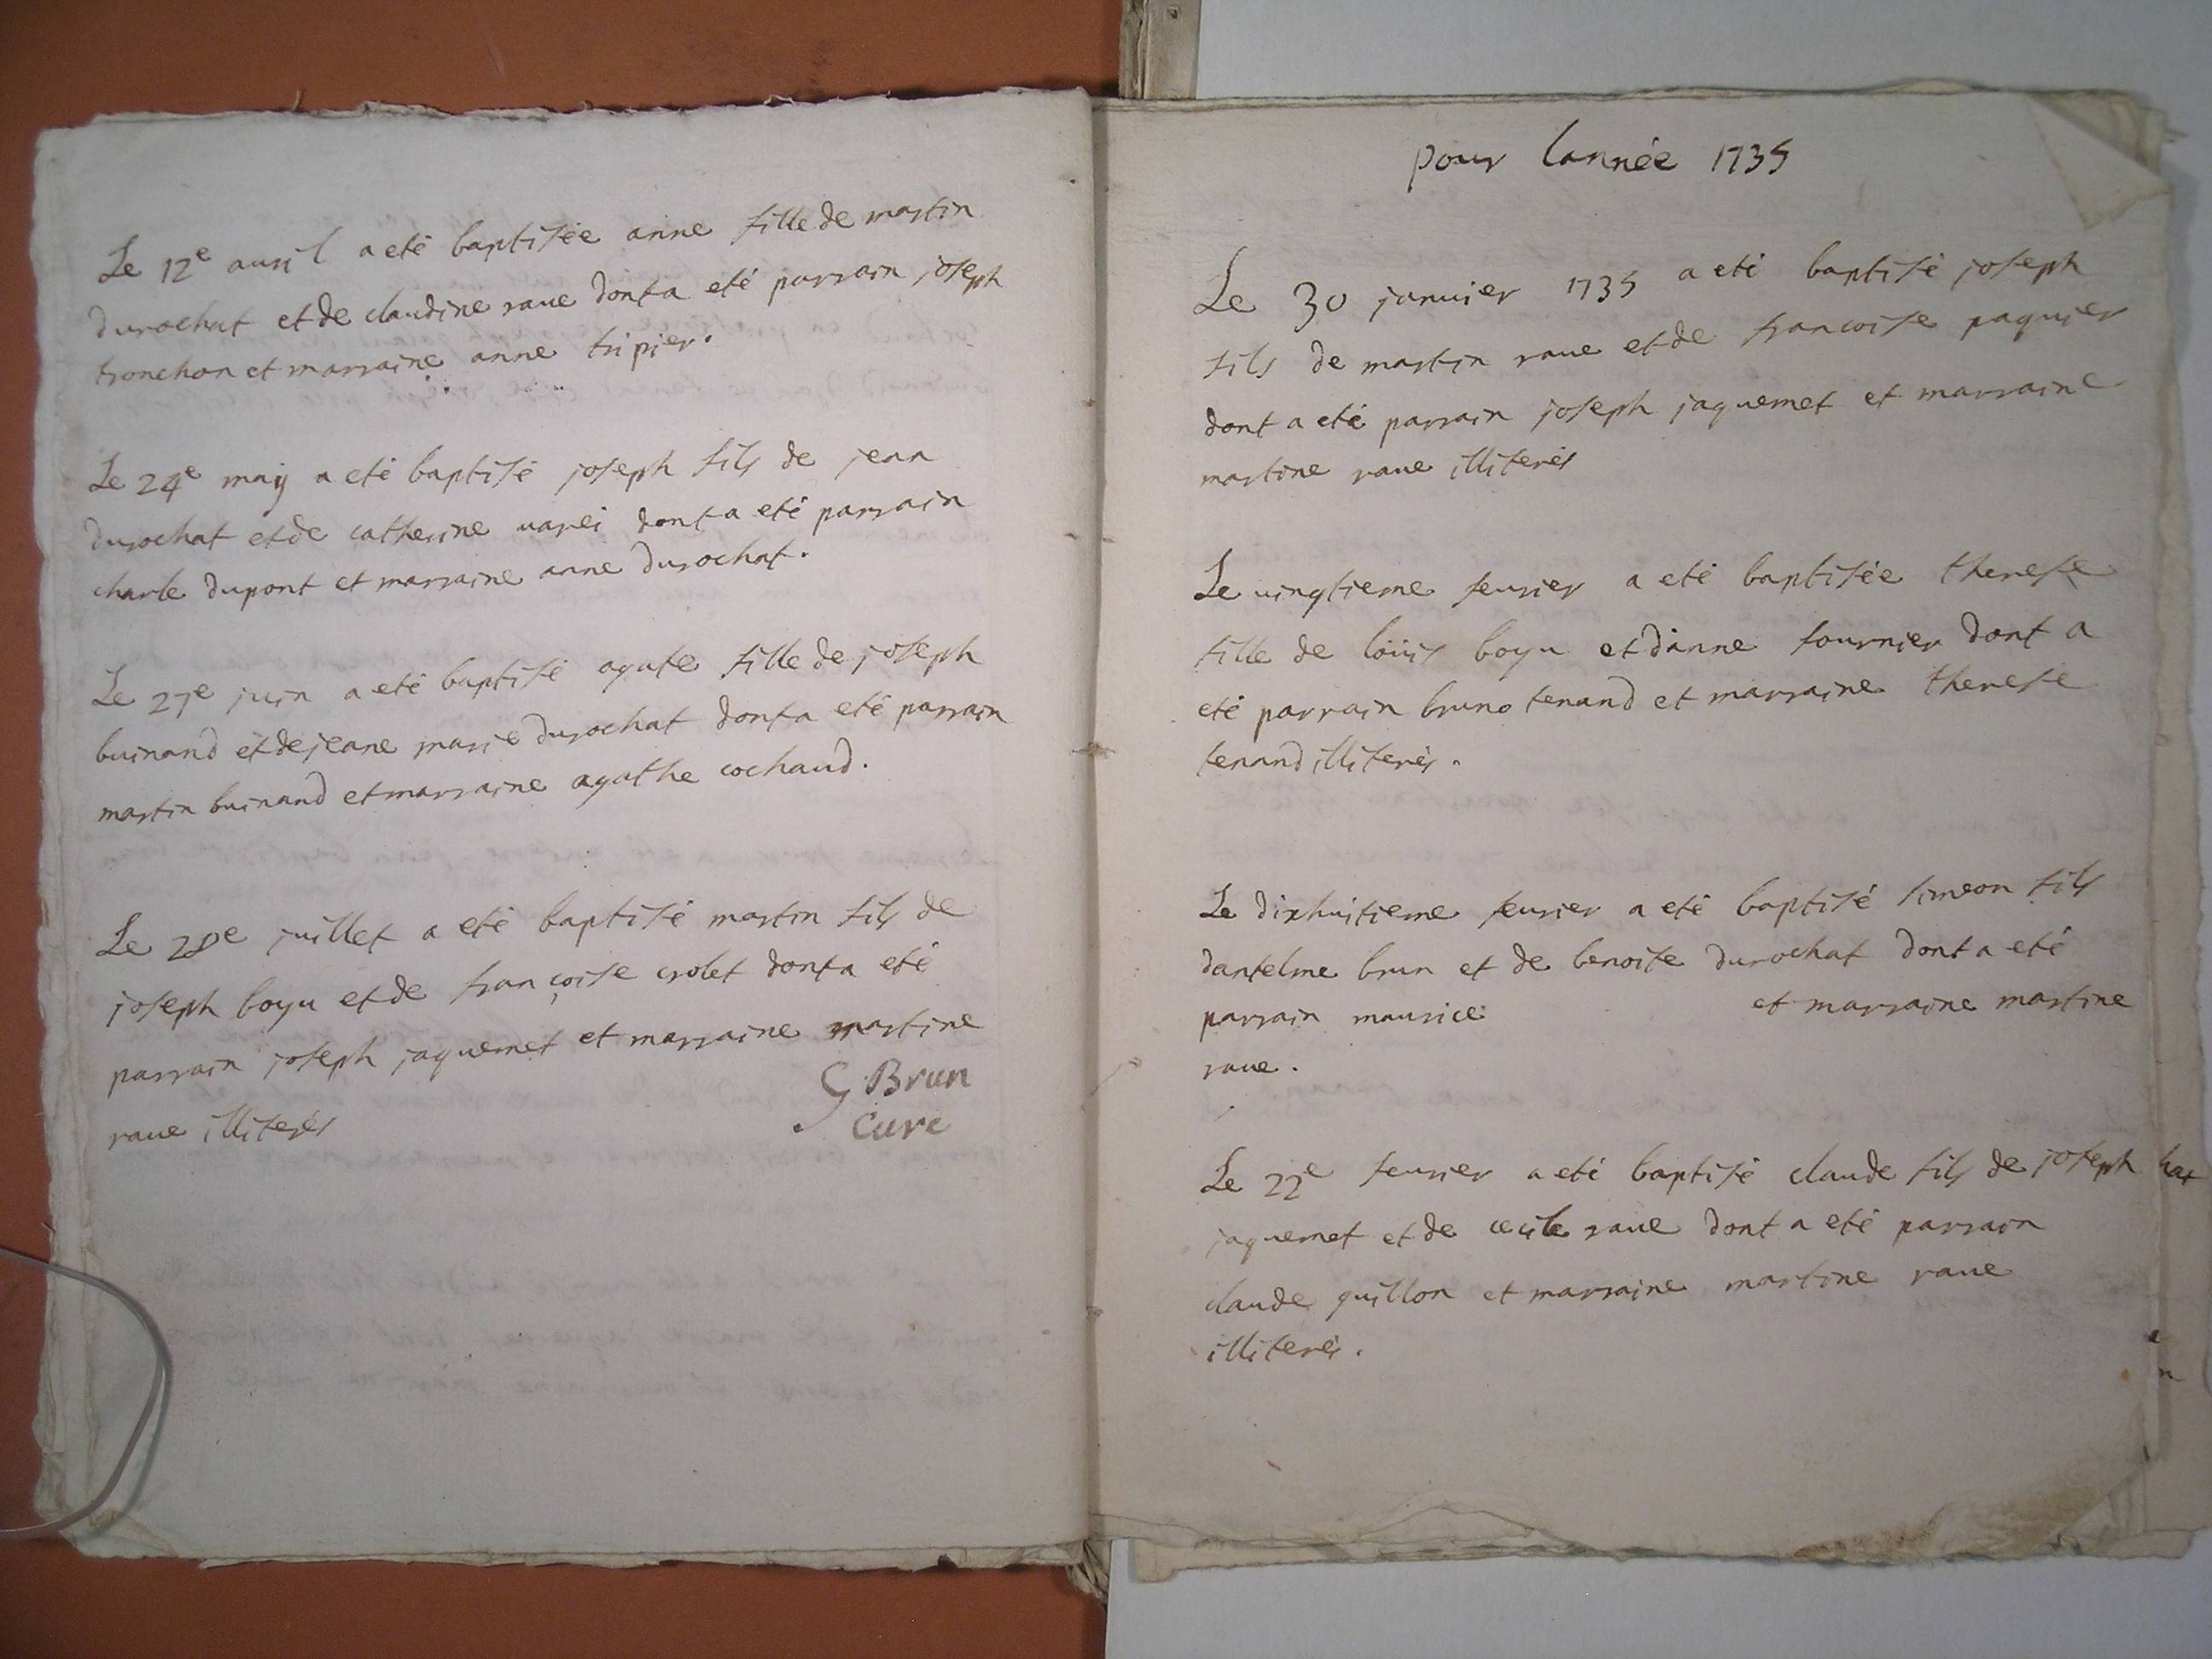 Le 12e auril a eté baptisée anne fille de martin
durochat et de claudine raue dont a eté parrain joseph
tronchon et marraine anne tripier.
Le 24e maij a eté baptisé joseph fils de jean
durochat et de catherine varei dont a eté parrain
charle dupont et marraine anne durochat.
Le 27e juin a eté baptisé agate fille de joseph
buinand et de jeane marie durochat dont a eté parrain
martin buinand et marraine agathe cochaud.
Le 28e juillet a eté baptisé martin fils de
joseph boyu et de françoise crolet dont a eté
parrain joseph jaquemet et marraine martine
raue illiterés
G Brun
Cure
pour lannée 1735
Le 30 januier 1735 a eté baptisé joseph
fils de martin raue et de francoise paquier
dont a eté parrain joseph jaquemet et marraine
martine raue illiterés
Le uingtieme feurier a eté baptisée therese
fille de loüis boyu et danne fournier dont a
eté parrain bruno tenand et marraine therese
tenand illiterés.
Le dixhuitieme feurier a eté baptisé simeon fils
dantelme brun et de benoite durochat dont a eté
parrain maurice et marraine martine
raue.
Le 22e feurier a eté baptisé claude fils de joseph
jaquemet et de cecile raue dont a eté parrain
claude guillon et marraine martine raue
illiterés.